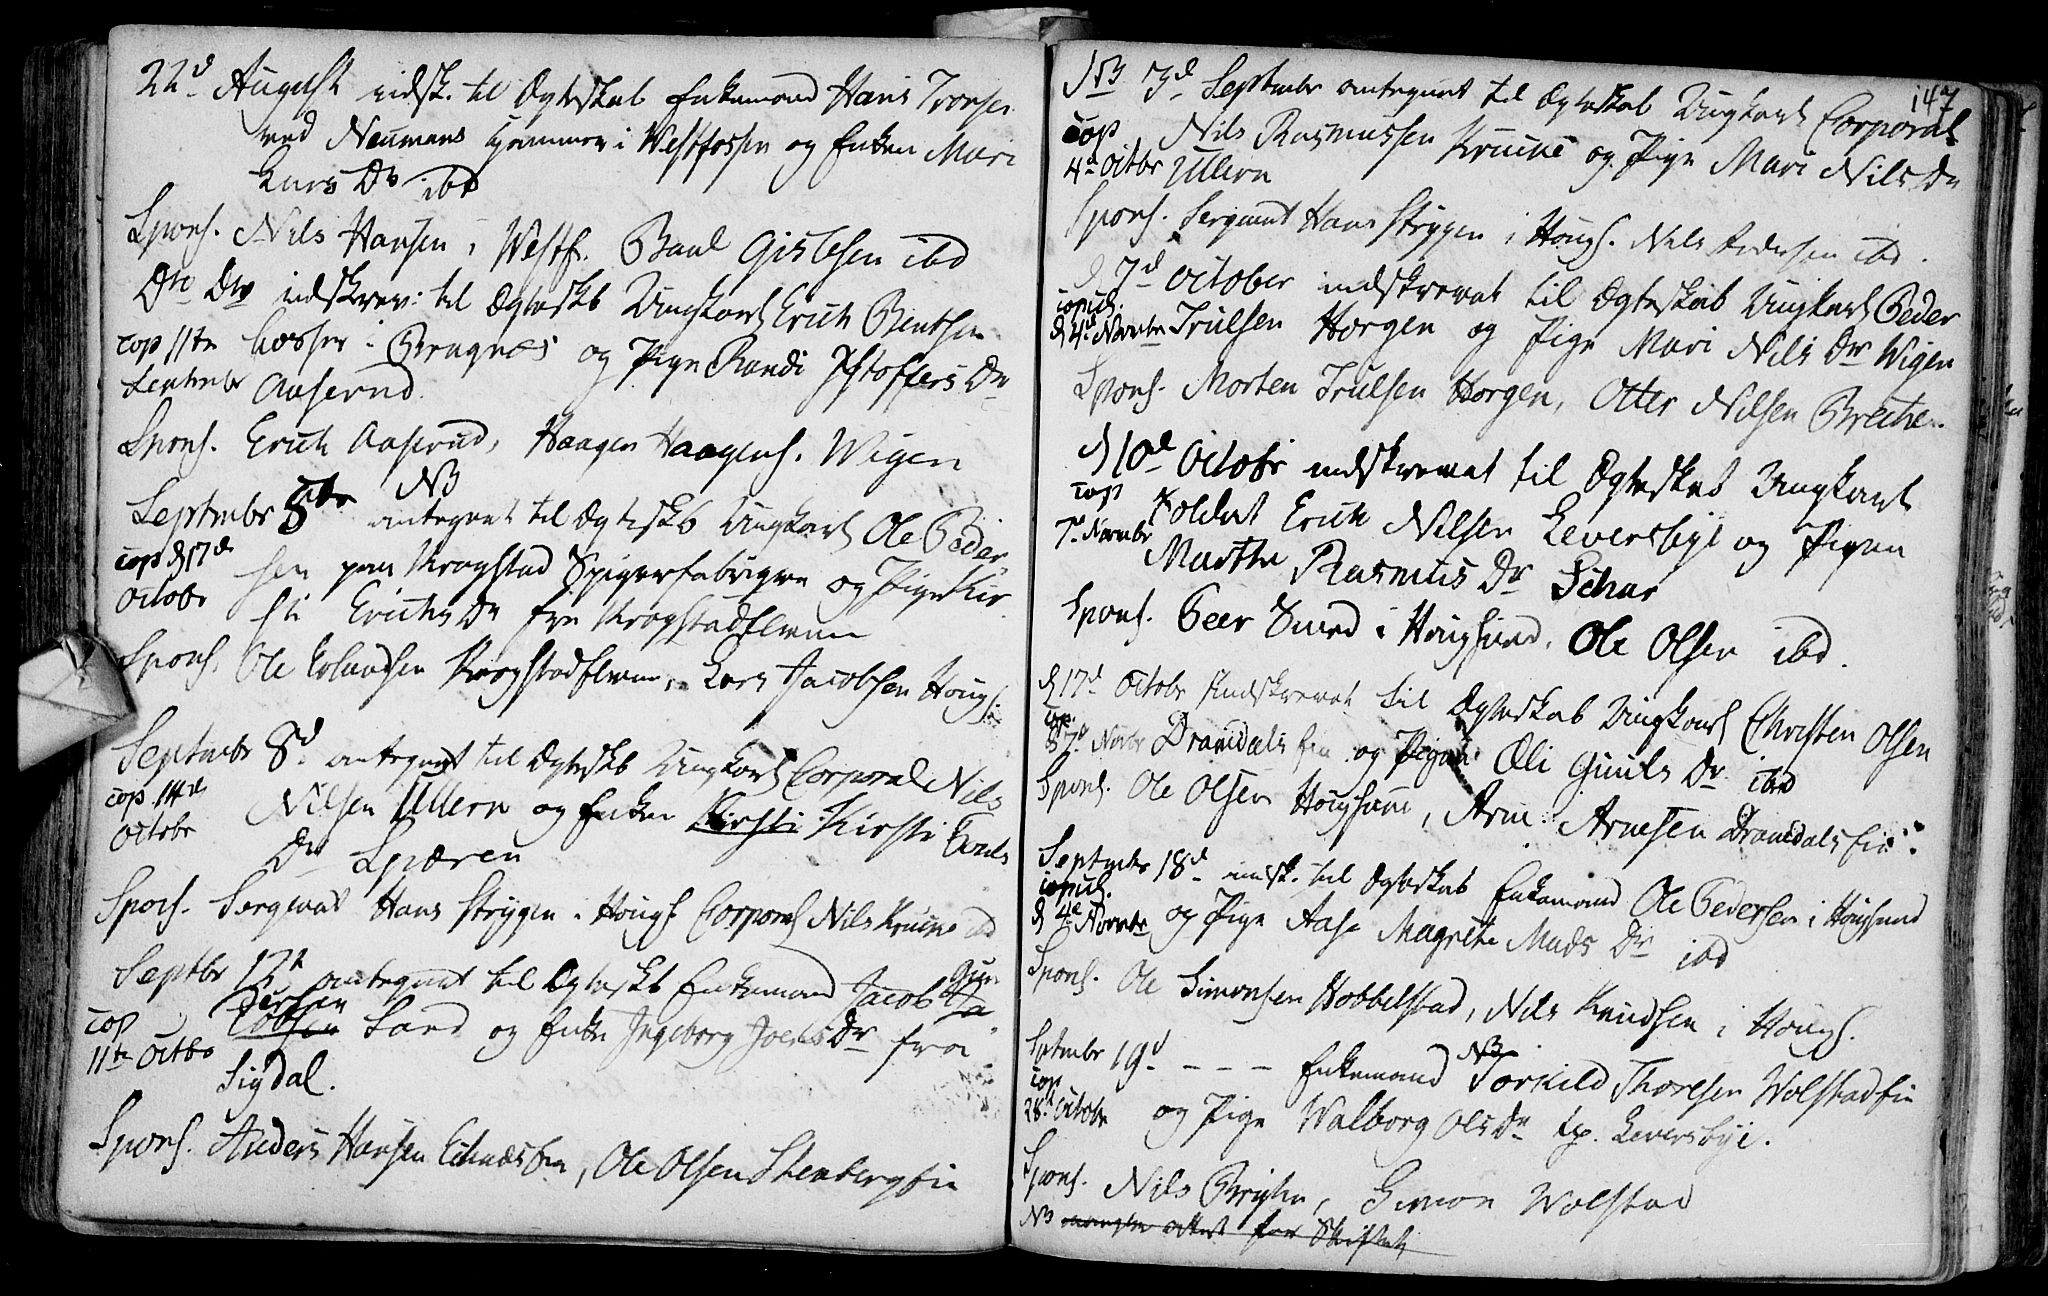 22d August indsk. til Ægteskab Enkemand Hans Tronsen
ved Neumans Hammer i Westfossen og Enken Mari
Lars Dr ibd
Spons. Nils Hansen i Westf. Paul Gislesen ibd
Dto Dto indskrev: til Ægteskb Ungkarl Erich Bentsen
cop 11te
Septembr
i Bragnæs og Pige Randi Christoffers Dr
Aaserud.
Spons. Erich Aaserud, Haagen Haagens. Wigen
NB
Septembr 8de antegnet til Ægteskb Ungkarl Ole Peder-
cop d 17d
Octobr
sen paa Krogstad Spigerfabrique og Pige Kir-
sti Erichs Dr fra Krogstadelven
Spons. Ole Erlandsen Krogstadelven, Lars Jacobsen Hougs.
Septembr 8d antegnet til Ægteskb Ungkarl Corporal Nils
cop 14d
Octobr
Nilsen Ullern og Enken Kirsti Kirsti
Dr Spæren
Spons. Sergeant Hans Strygen i Hougs Corporal Nils Kruke ibd
Septbr 12t antegnet til Ægteskb Enkemand Jacob Gun
dersen
cop
11te Octbr
Ja
cobsen Sand og Enke Ingeborg Joels Dr fra
Sigdal.
Spons. Anders Hansen Eknæs Eie, Ole Olsen Stenberg Eie
147
NB 3d Septembr antegnet til Ægteskab Ungkarl Corporal
cop
4d Octbr
Nils Rasmussen Kruke og Pige Mari Nils Dr
Ullern
Spons. Sergeant Hans Strygen i Hougs. Nils Pedersen ibd.
d 7d October indskrevet til Ægteskab Ungkarl Peder
copul.
d 4d Novembr
Trulsen Horgen og Pige Mari Nils Dr Wigen
Spons. Morten Trulsen Horgen, Otter Nilsen Brecke.
d 10d Octobr indskrevet til Ægteskab Ungkarl
cop
7d Novembr
Soldat Erich Nilsen Leversbye og Pigen
Marthe Rasmus Dr Schar
Spons. Peer Smed i Hougsund, Ole Olsen ibd.
d 17d Octobr Indskrevet til Ægteskab Ungkarl Christen Olsen
cop.
Novbr Dramdals Eie og Pigen Eli Guuls Dr ibd
Spons. Ole Olsen Hougsund, Arne Arnesen Dramdals Eie.
Septembr 18d indsk. til Ægteskab Enkemand Ole Pedersen i Hougsund
copul.
d 4d Novembr
og Pige Aase Magrete Mads Dr ibd
Spons. Ole Simonsen Hobbelstad, Nils Knudsen i Hougs.
NB
Septembr 19d - - - Enkemand Torkild Thoresen Wolstad Eie
cop
28d Octobr
og Pige Walborg Ols Dr Leversbye.
Spons. Nils, Simon Wolstad
NB mangler attest for Skiftet